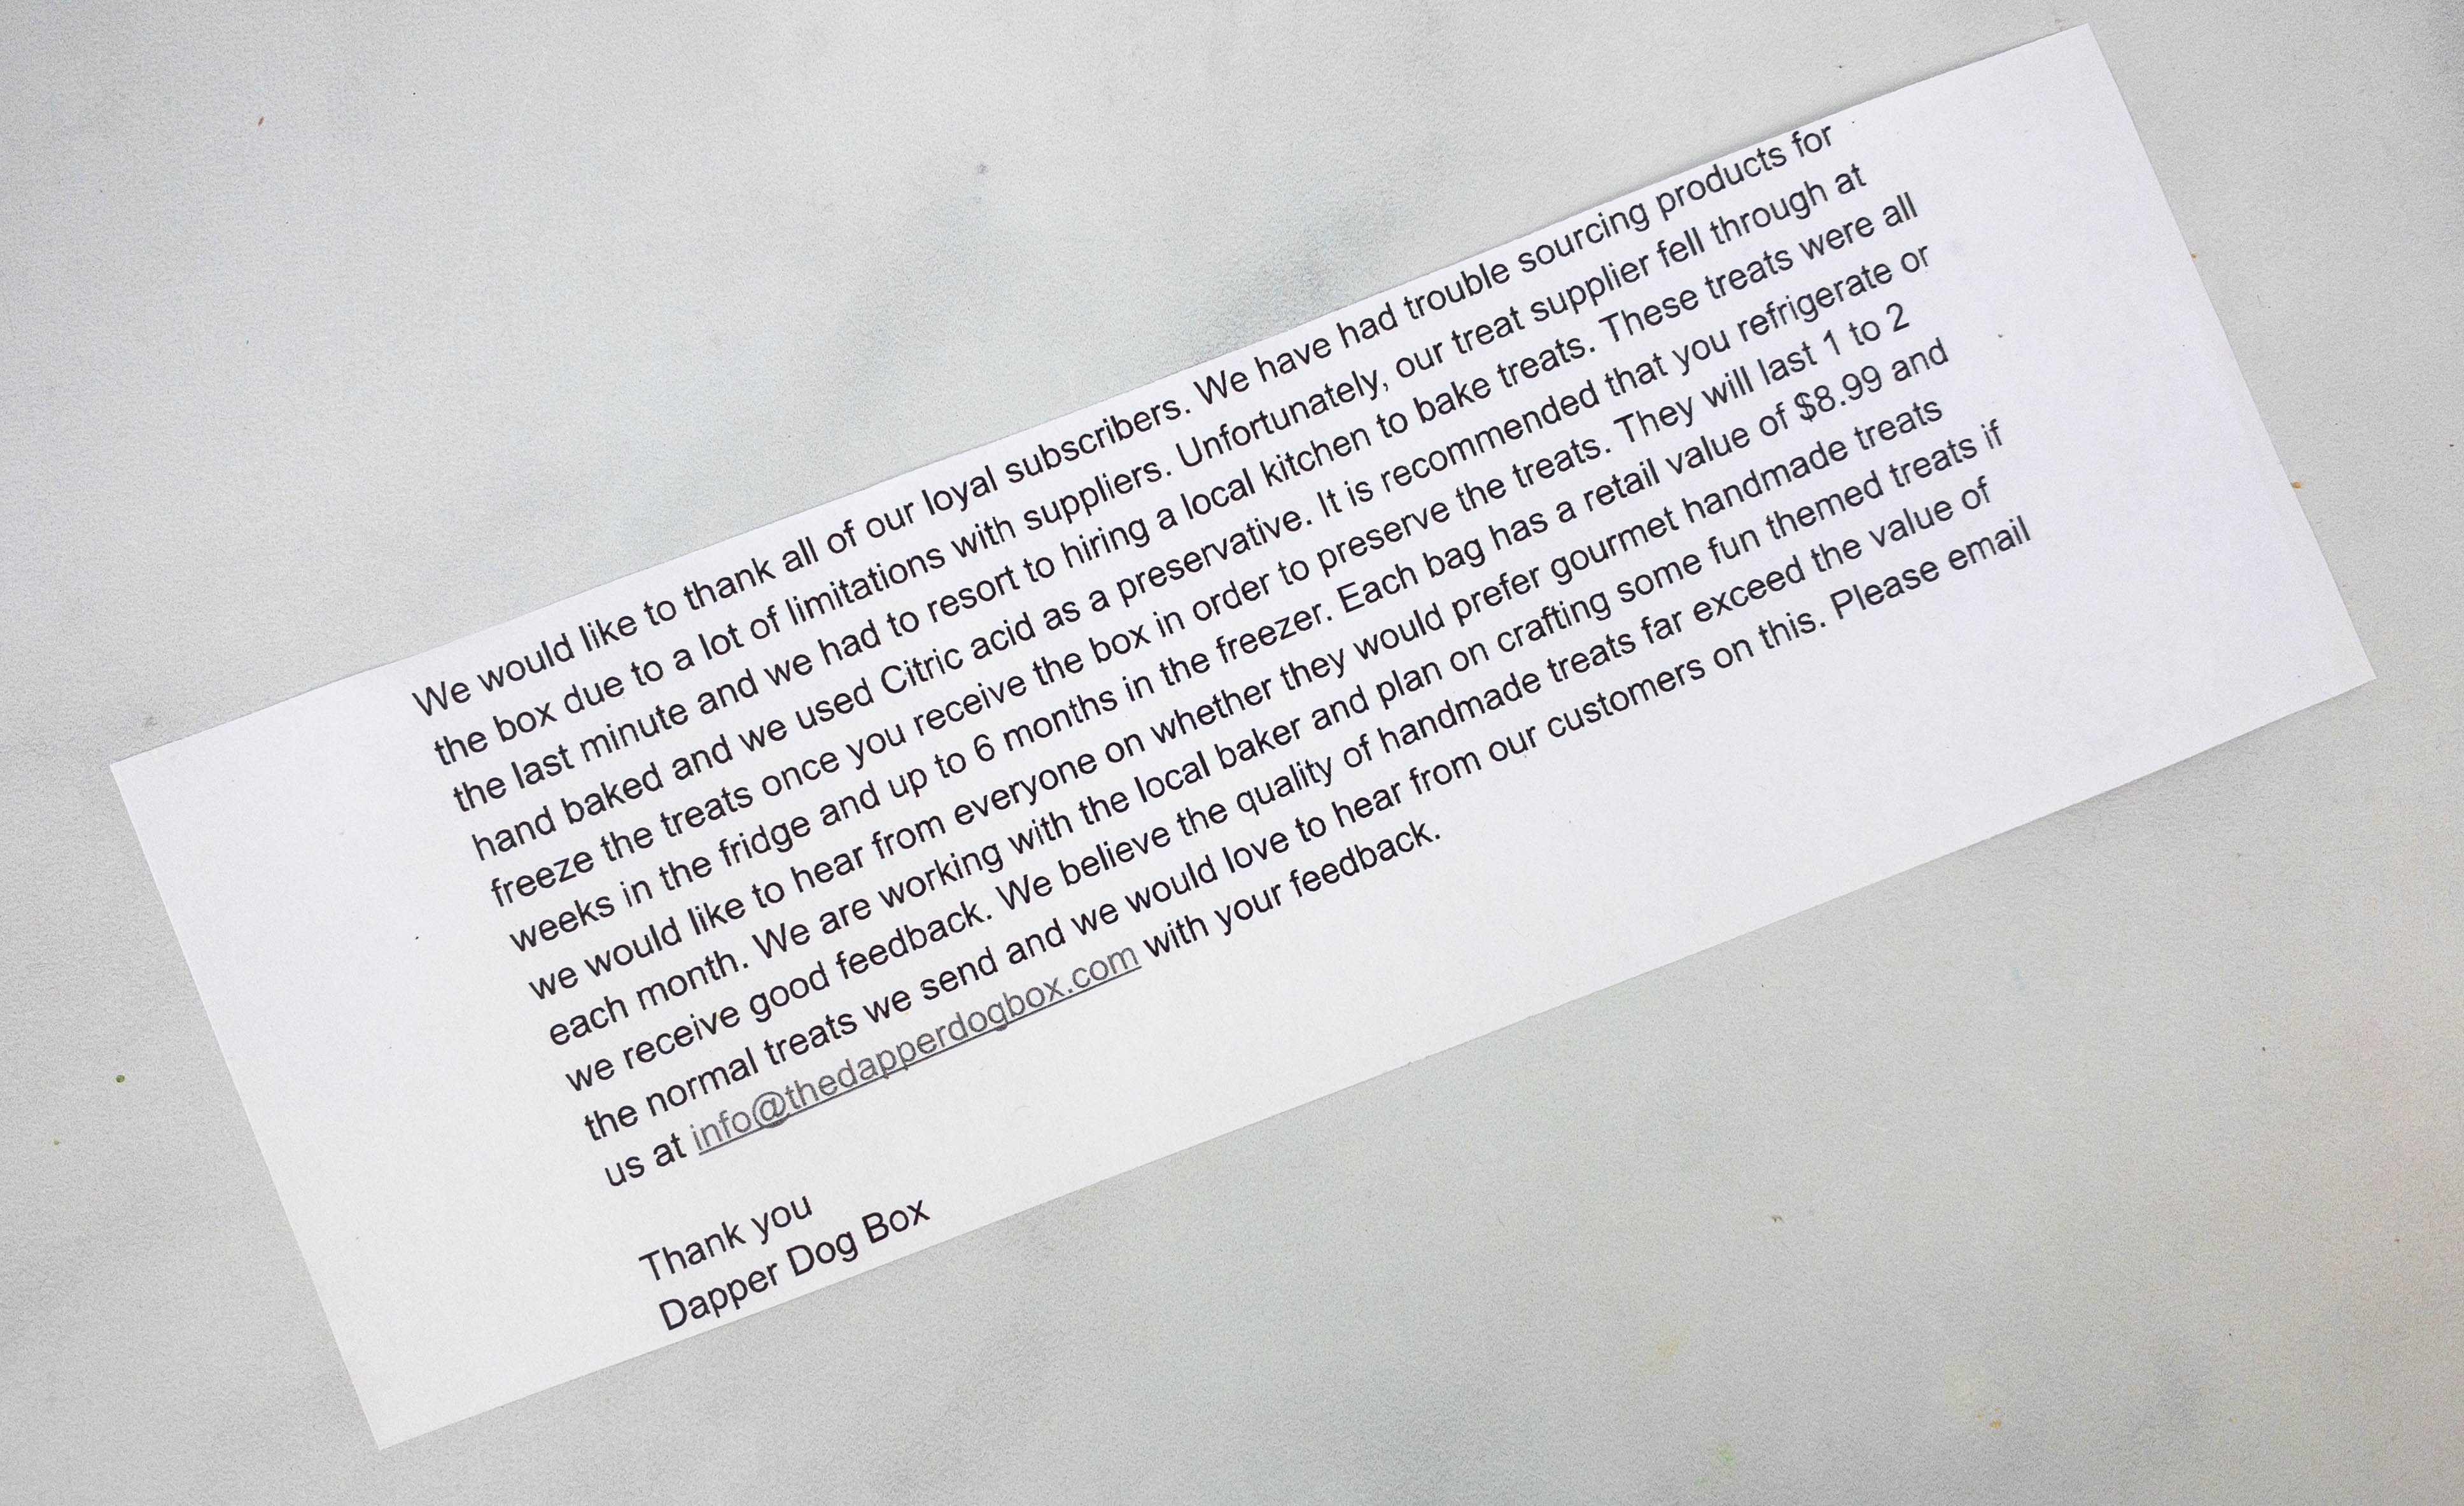 We would like to thank all of our loyal subscribers. We have had trouble sourcing products for
the box due to a lot of limitations with suppliers. Unfortunately, our treat supplier fell through at
the last minute and we had to resort to hiring a local kitchen to bake treats. These treats were all
hand baked and we used Citric acid as a preservative. It is recommended that you refrigerate or
freeze the treats once you receive the box in order to preserve the treats. They will last 1 to 2
weeks in the fridge and up to 6 months in the freezer. Each bag has a retail value of $8.99 and
we would like to hear from everyone on whether they would prefer gourmet handmade treats
each month. We are working with the local baker and plan on crafting some fun themed treats if
we receive good feedback. We believe the quality of handmade treats far exceed the value of
the normal treats we send and we would love to hear from our customers on this. Please email
us at info@thedapperdogbox.com with your feedback.
Thank you
Dapper Dog Box